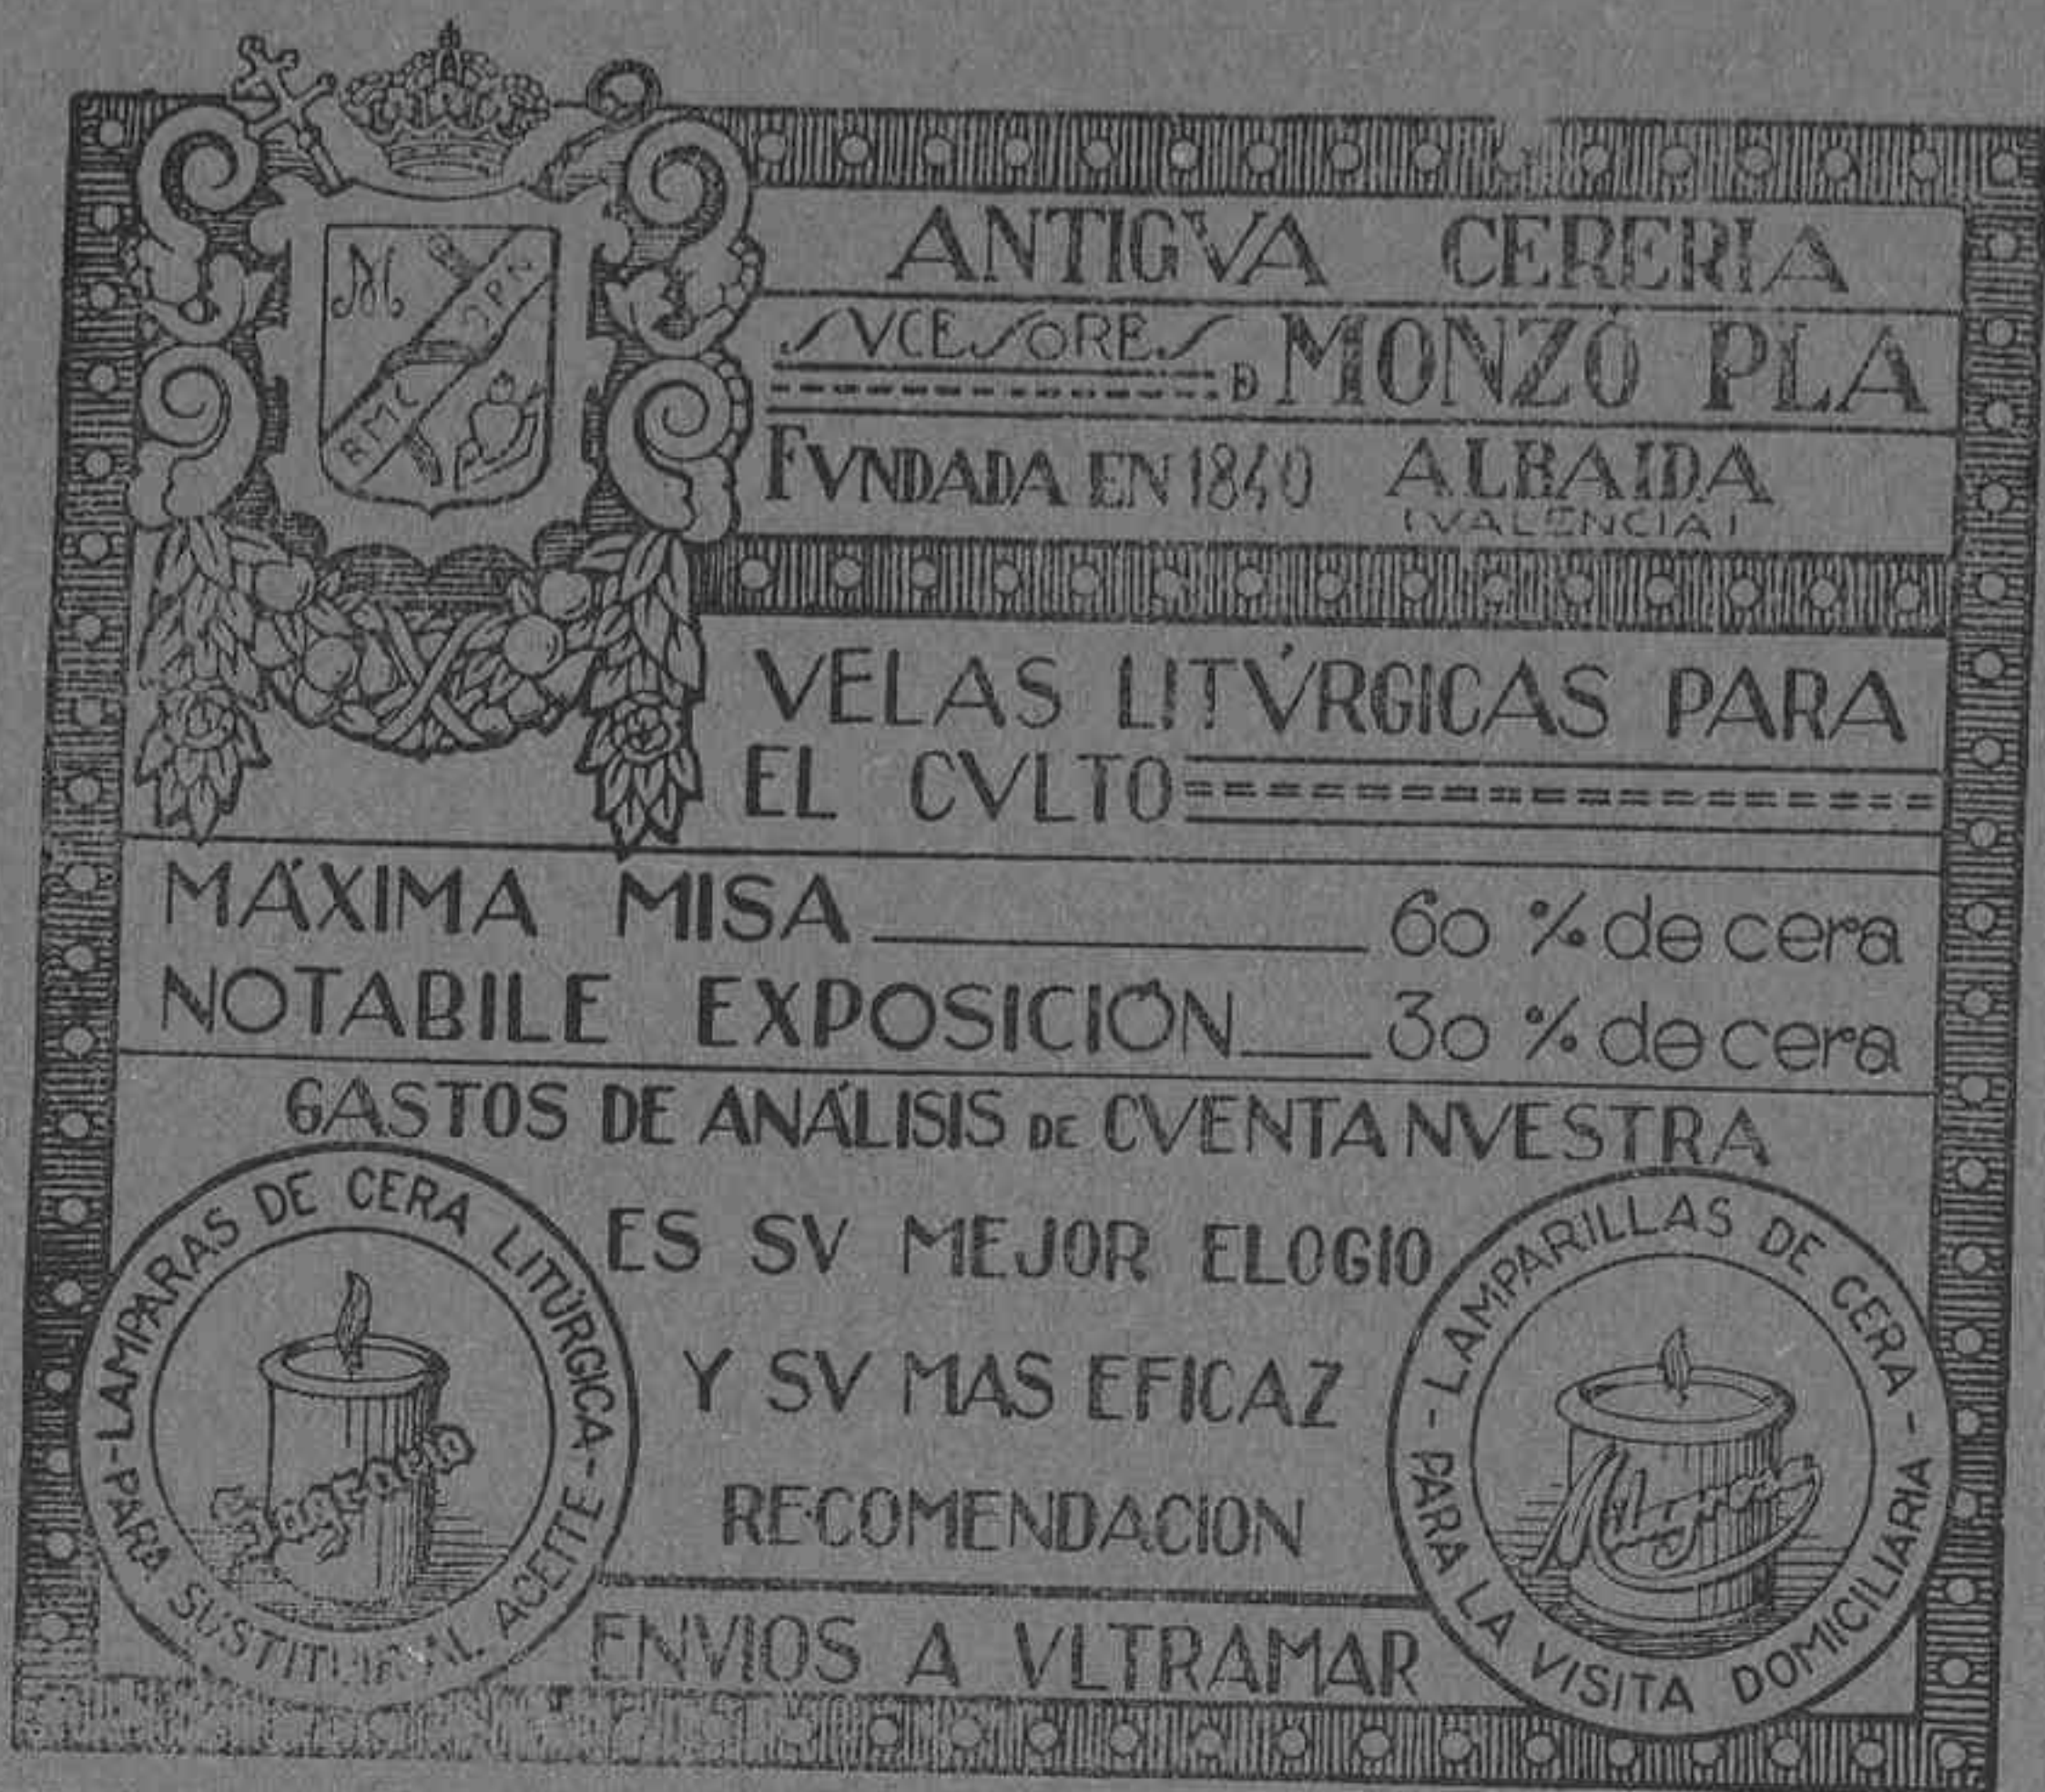 ANTIGVA CERERIA
SVCESORES D MONZÓ PLA
FVNDADA EN 1840 ALBAIDA
(VALENCIA)
VELAS LITÚRGICAS PARA
EL CVLTO
MÁXIMA MISA 60 % de cera
NOTABILE EXPOSICIÓN 30 % de cera
GASTOS DE ANÁLISIS DE CVENTA NVESTRA
ES SV MEJOR ELOGIO
Y SV MAS EFICAZ
RECOMENDACION
ENVIOS A VLTRAMAR
-LAMPARAS DE CERA LITÚRGICA-
PARA SUSTITUIR AL ACEITE
Sagrario
- LAMPARILLAS DE CERA -
PARA LA VISITA DOMICILIARIA
RMC